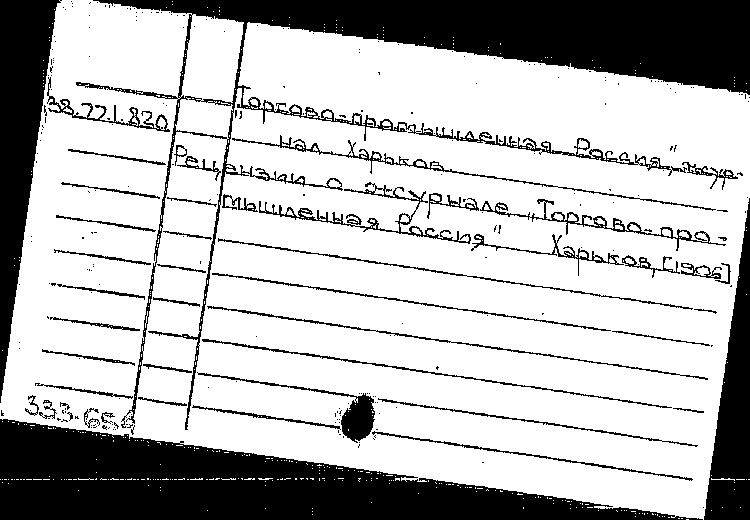 38.771.820
„Торгово-промышленная Россия", жур-
нал. Харьков.
Рецензии о журнале „Торгово-про-
мышленная Россия". Харьков, [1906]
333-654